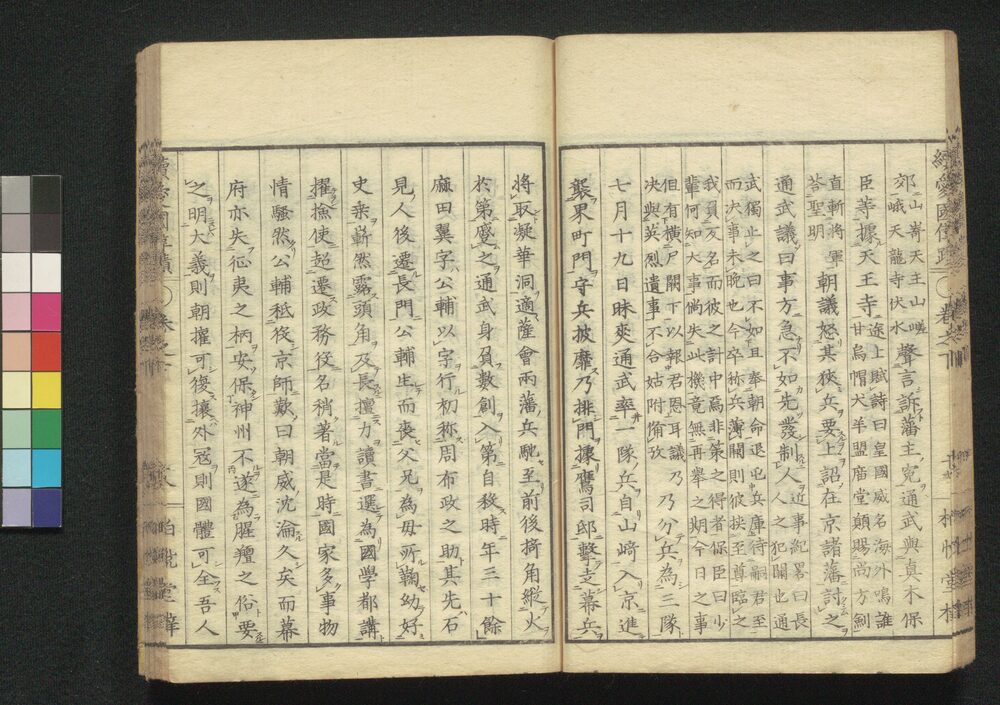 郊山嵜天主山嵯
峨天龍寺伏水聲言訴藩主寃通武與真木保
臣等據天王寺途上賦詩曰皇國威名海外鳴誰
甘烏帽犬羊盟廟堂願賜尚方劍
直斬將軍
答聖明朝議怒其狹兵要上詔在京諸藩討之
通武議曰事方急不如先發制人近事紀畧曰長
人之犯闕也通
武獨止之曰不如且奉朝命退屯兵庫待嗣君至
而决事未晩也今卒称兵薄闕則彼挾至尊臨之
我負反名而彼之計中焉非策之得者保臣曰少
輩何知大事倘失此機竟無再擧之期今日之事
但有横尸闕下以報君恩耳議乃
决與英烈遺事不合姑附備攷乃分兵為三隊
七月十九日昧爽通武率一隊兵自山崎入京進
襲果町門守兵披靡乃排門據鷹司邸擊走幕兵
將取凝華洞適薩會兩藩兵馳至前後掎角縱火
於第廢之通武身負數創入第自殺時年三十餘
麻田翼字公輔以字行初称周布政之助其先石
見人後遷長門公輔生而喪父兄為母所鞠幼好
史乗嶄然露頭角及長擅力讀書選為國學都講
擢撫使超遷政務役名稍著當是時國家多事物
情騷然公輔秪役京師歎曰朝威沈淪久矣而幕
府亦失征夷之柄安保神州不遂為腥羶之俗要
之明大義則朝權可復攘外寇則國體可全吾人